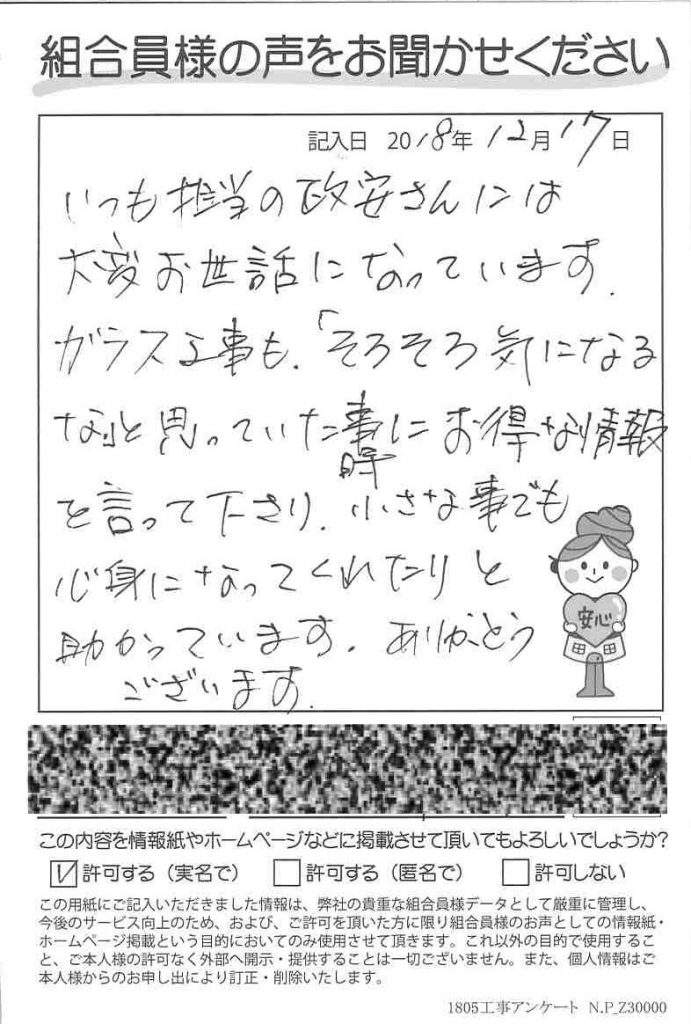 組合員様の声をお聞かせください
記入日 2018年 12月 17日
いつも担当の政安さんには
大変お世話になっています.
ガラス工事も、「そろそろ気になる
な」と思っていた事にお得な情報
時
を言って下さり、小さな事でも
心身になってくれたりと
助かっています. ありがとう
ございます.
安心
この内容を情報紙やホームページなどに掲載させて頂いてもよろしいでしょうか?
許可する(実名で) 許可する(匿名で) 許可しない
この用紙にご記入いただきました情報は、弊社の貴重な組合員様データとして厳重に管理し、
今後のサービス向上のため、および、ご許可を頂いた方に限り組合員様のお声としての情報紙・
ホームページ掲載という目的においてのみ使用させて頂きます。これ以外の目的で使用するこ
と、ご本人様の許可なく外部へ開示・提供することは一切ございません。また、個人情報はご
本人様からのお申し出により訂正・削除いたします。
1805工事アンケート N.P_Z30000